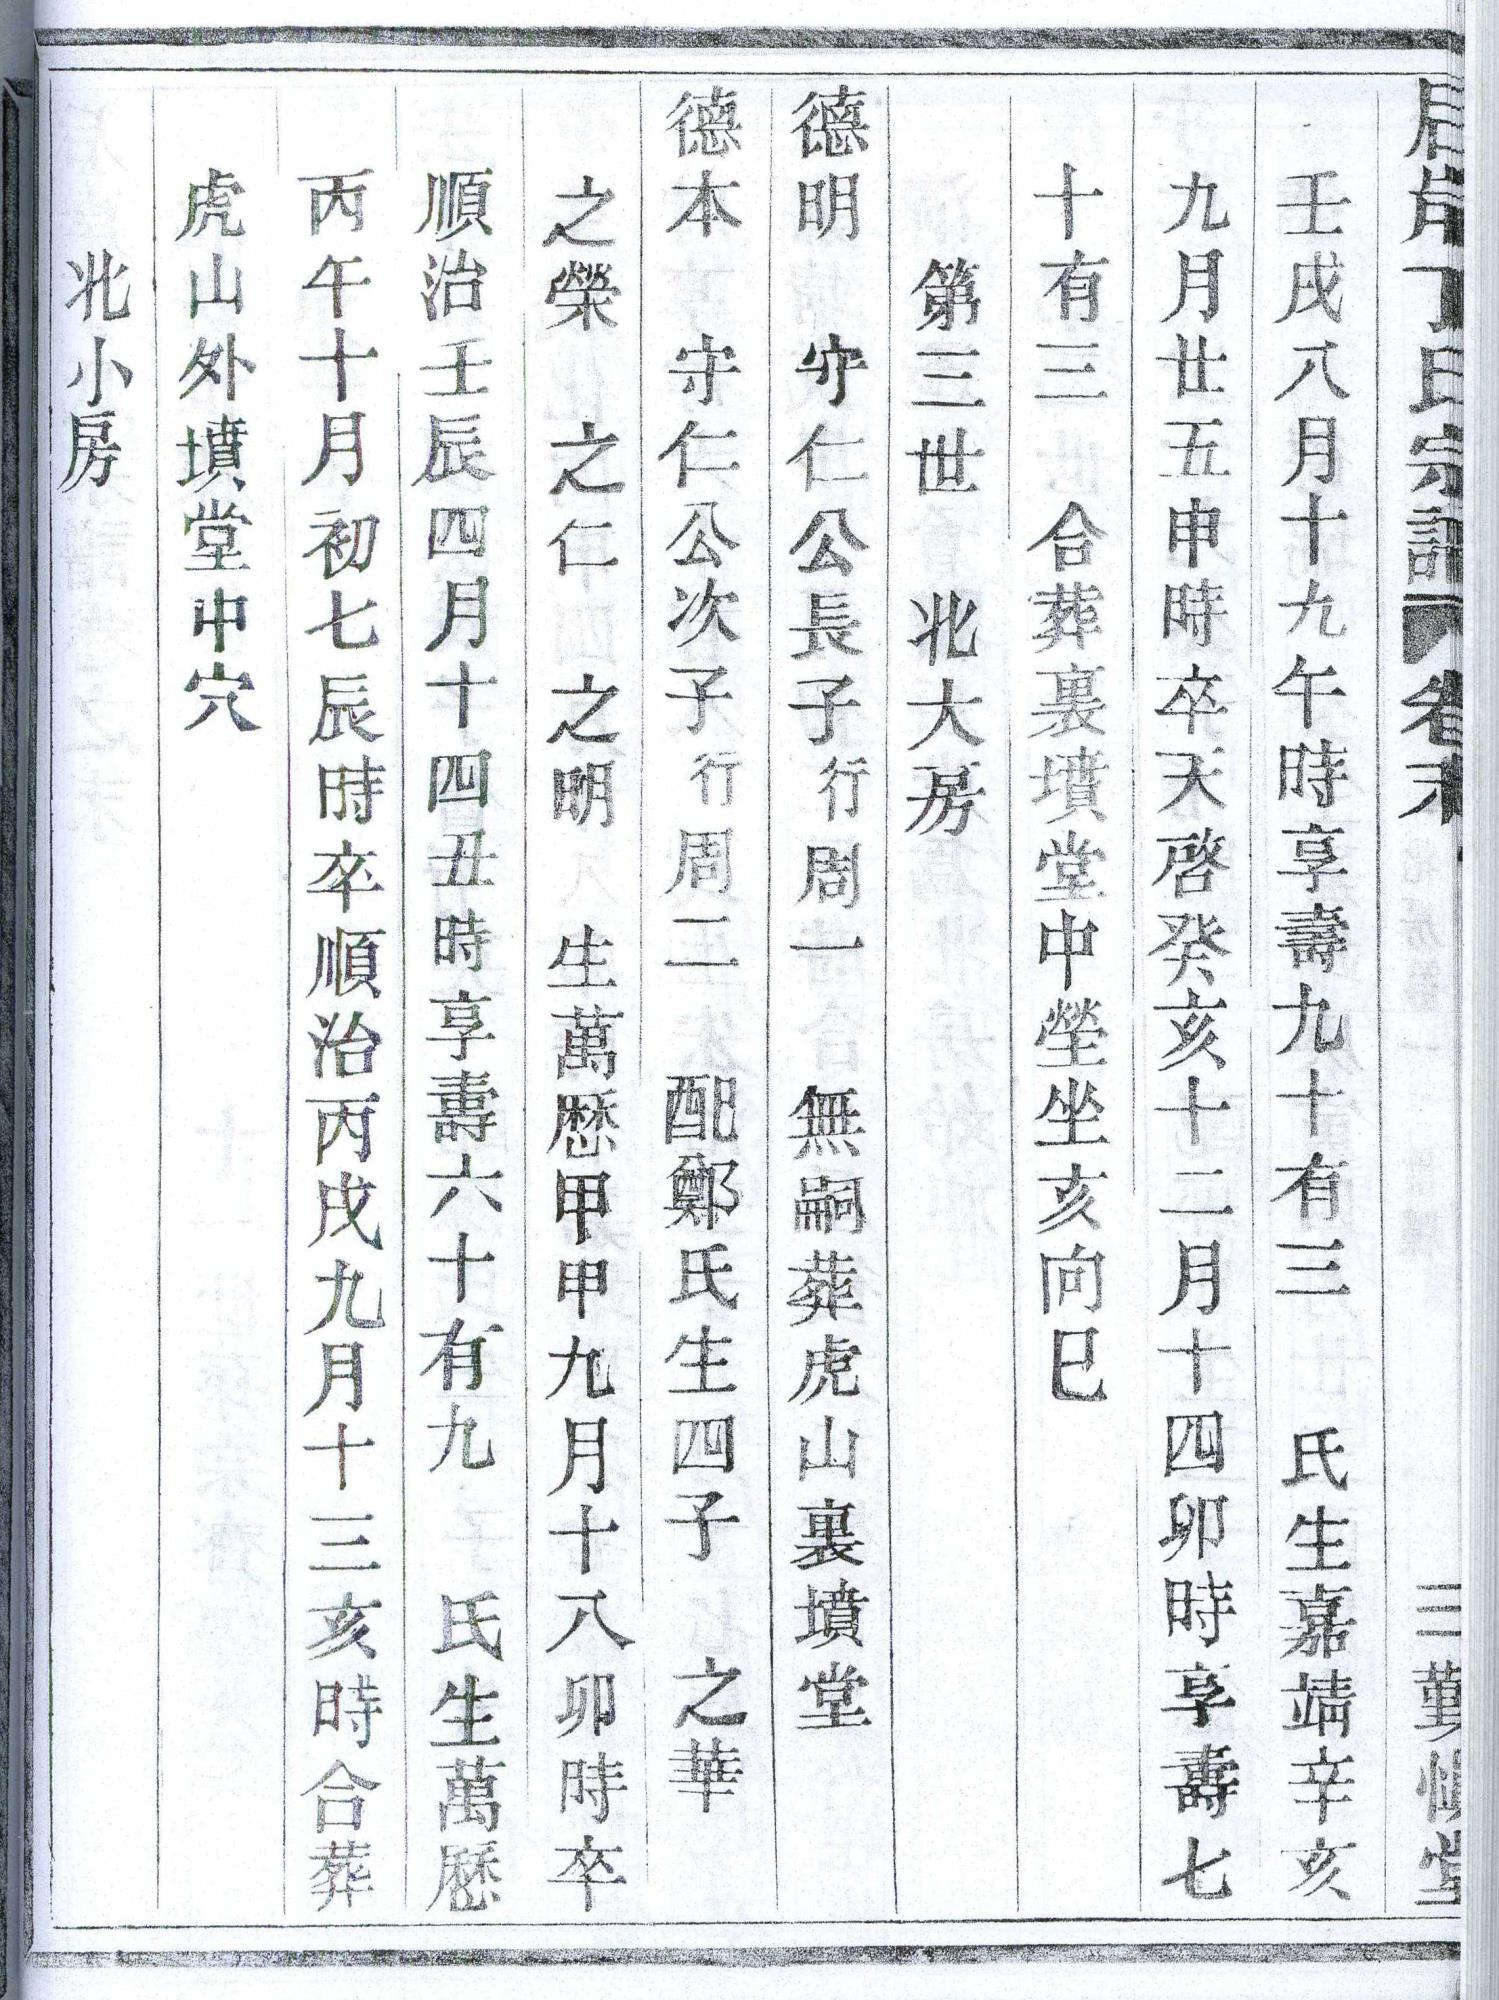 丁氏宗譜 卷末 三 勤慎堂
壬戌八月十九午時享壽九十有三 氏生嘉靖辛亥
九月廿五申時卒天啓癸亥十二月十四卯時享壽七
十有三 合葬裏墳堂中塋坐亥向巳
第三世 北大房
德明 守仁公長子行周一 無嗣葬虎山裏墳堂
德本 守仁公次子行周二 配鄭氏生四子 之華
之榮 之仁 之明 生萬歷甲甲九月十八卯時卒
順治壬辰四月十四丑時享壽六十有九 氏生萬歷
丙午十月初七辰時卒順治丙戌九月十三亥時合葬
虎山外墳堂中穴
北小房